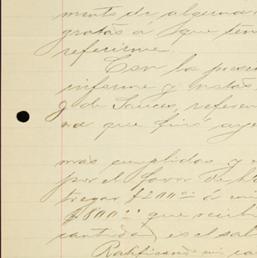 mento de alguna
gratas á que ten
referirme.
Con la presen
informe y
J. de referen
na que fué aye
más cumplidas y
por el favor de h
tregar $200.00 á mi
$800.00 que recib
cantidad es el sal
Ratificando mi ca